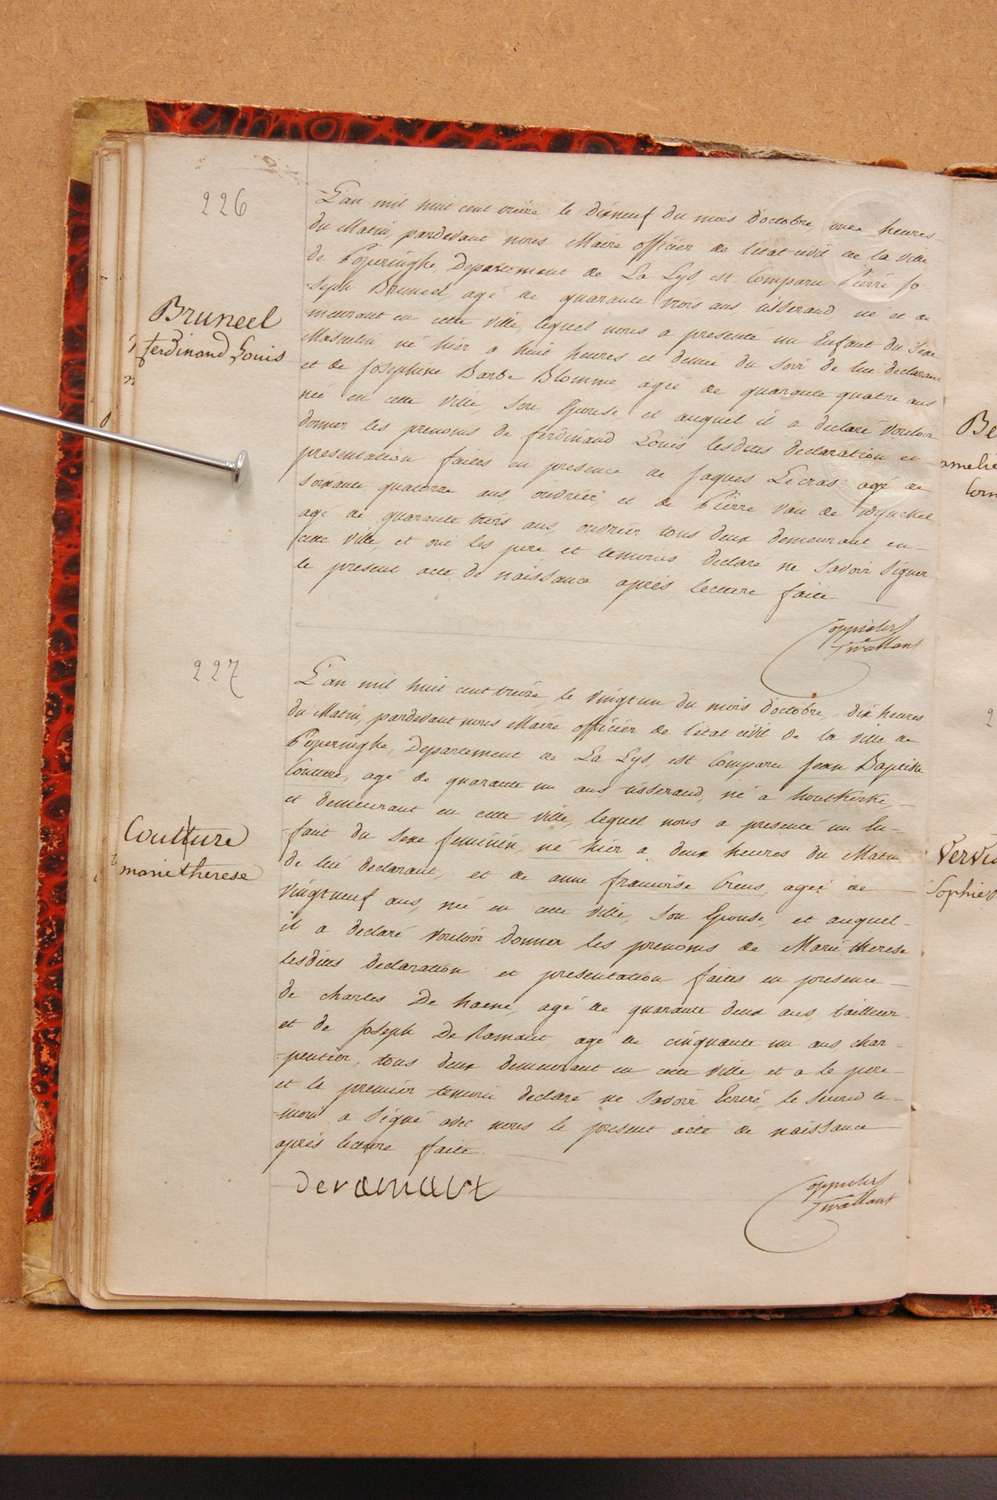 226
L'an mil huit cent treize le dixneuf du mois d'octobre, onze heures
du Matin, pardevant nous Maire officier de l'état civil de la ville
de Poperinghe, Departement de La Lys est Comparu Pierre Jo-
seph Bruneel, agé de quarante trois ans, tisserand né et de
meurant en cette ville, lequel nous a presenté un Enfant du Sexe
Masculin né hier a huit heures et demie du Soir de lui declarant
et de Josephine Barbe Blomme, agée de quarante quatre ans
née en cette ville, Son Epouse et auquel il a declaré vouloir
donner les prenoms de ferdinand Louis lesdites declaration et
presentation faites en presence de Jaques Lecras agé de
Soixante quatorze ans, ouvrier, et de Pierre Van de
agé de quarante trois ans, ouvrier tous deux demeurant en
cette ville et ont les pere et temoins declaré ne Savoir Signer
le present acte de naissance après lecture faite
Bruneel
ferdinand Louis
227
L'an mil huit cent treize, le vingt un du mois d'octobre, dix heures
du Matin, pardevant nous Maire officier de l'état civil de la ville de
Poperinghe, Departement de La Lys, est Comparu Jean Baptiste
Couture, agé de quarante un ans tisserand, né a houtkerke
et demeurant en cette ville, lequel nous a presenté un En-
fant du Sexe feminin, né hier a deux heures du Matin
de lui declarant, et de anne francoise Creus, agée de
vingtneuf ans, née en cette ville, Son Epouse, et auquel
il a declaré vouloir donner les prenoms de Marie therese
lesdites declaration et presentation faites en presence
de charles De haene, agé de quarante deux ans tailleur
et de Joseph De Ramault agé de cinquante un ans char-
-pentier, tous deux demeurant en cette ville et a le pere
et le premier temoin declaré ne Savoir Ecrire, le Second te-
moin a Signé avec nous le present acte de naissance
après lecture faite
Couture
marie therese
deramault
Be
amelie
Corn
2
Vervi
Sophie